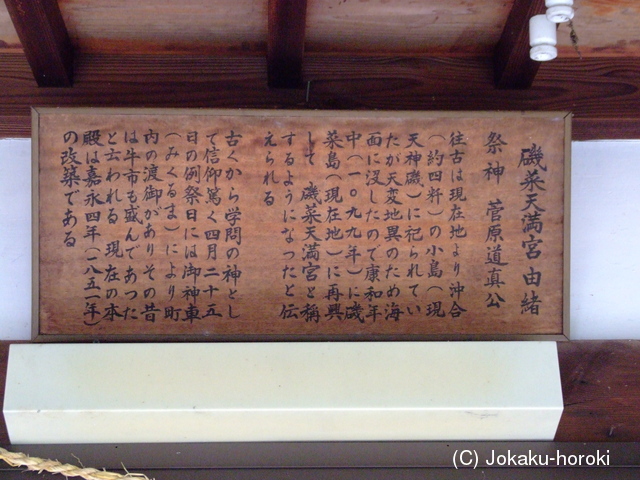 磯菜天満宮 由緒
祭神 菅原道真公
往古は現在地より沖合
(約四粁)の小島(現
天神磯)に祀られてい
たが天変地異のため海
面に没したので康和年
中(一〇九九年)に磯
菜島(現在地)に再興
して 磯菜天満宮と稱
するようになったと伝
えられる
古くから学問の神とし
て信仰篤く四月二十五
日の例祭日には御神車
(みくるま)により町
内の渡御がありその昔
は牛市も盛んであった
と云われる 現在の本
殿は嘉永四年(一八五一年)
の改築である
(C) Jokaku-horoki